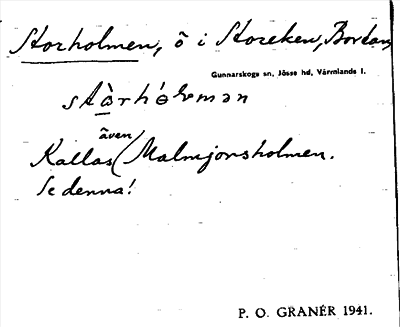 Storholmen, ö i Storeken, Bortan,
Gunnarskogs sn, Jösse hd, Värmlands l.
stòrhɵ́lmən
även
Kallas Malmjonsholmen.
Se denna!
P. O. GRANÉR 1941.